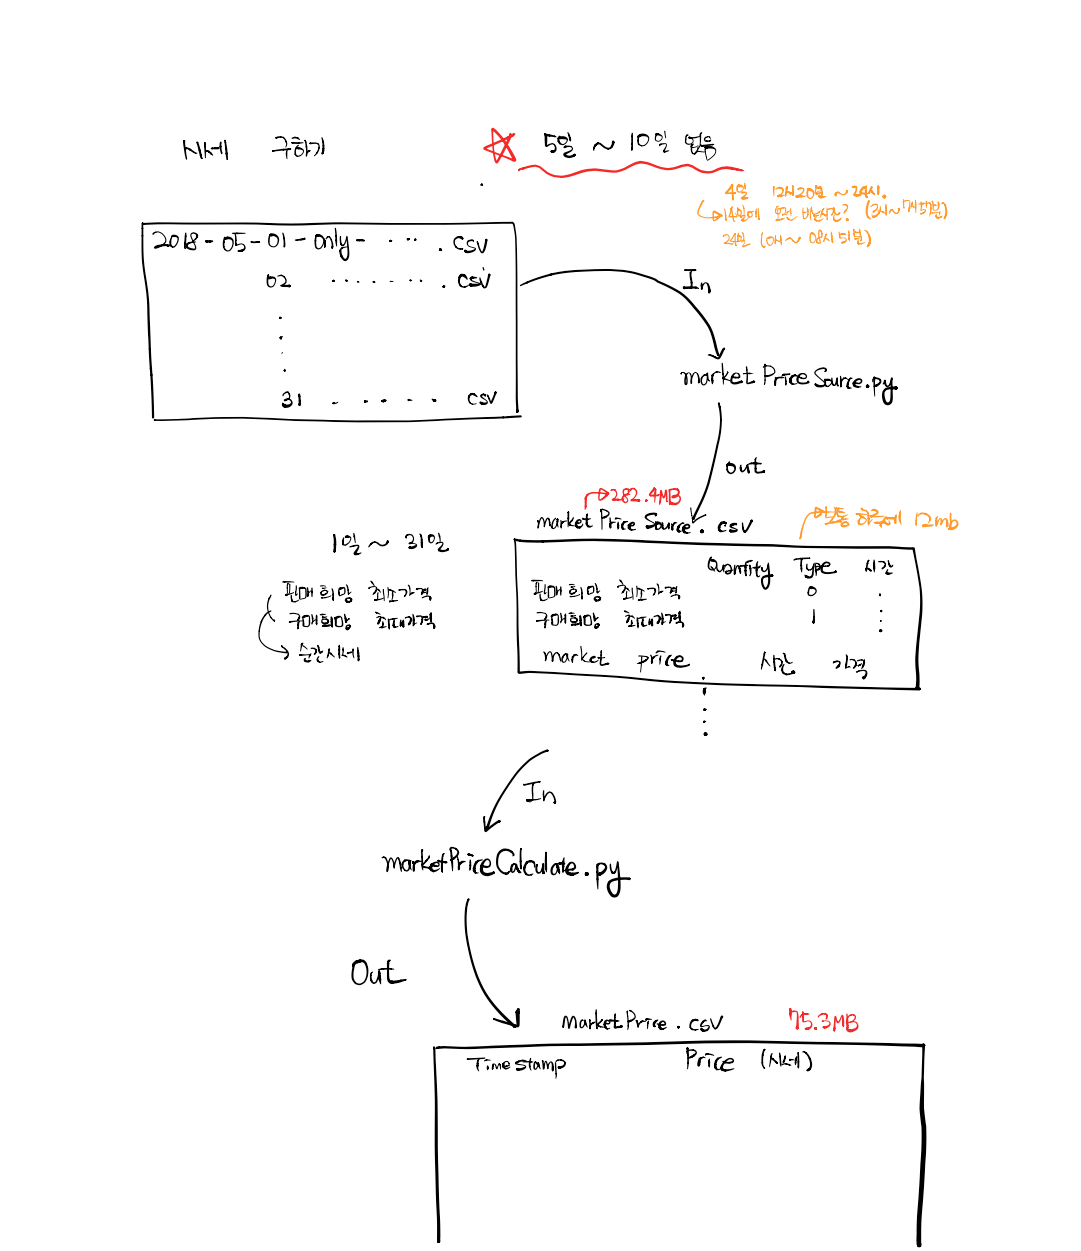 시세 구하기
5일 ~ 10일 없음
4일 12시20분 ~ 24시.
14일에 오전 비는시간? (3시~7시57분)
24일 (0시 ~ 08시51분)
2018-05-01-only- ... .csv
02 ....... .csv
31 ..... csv
In
market Price Source.py
out
282.4MB
market Price Source.csv
보통 하루에 12mb
1일 ~ 31일
판매희망 최소가격
구매희망 최대가격
순간시세
Quantity Type 시간
판매희망 최소가격 0
구매희망 최대가격 1
market price 시간 가격
In
marketPriceCalculate.py
Out
marketPrice.csv 75.3MB
Timestamp Price (시세)